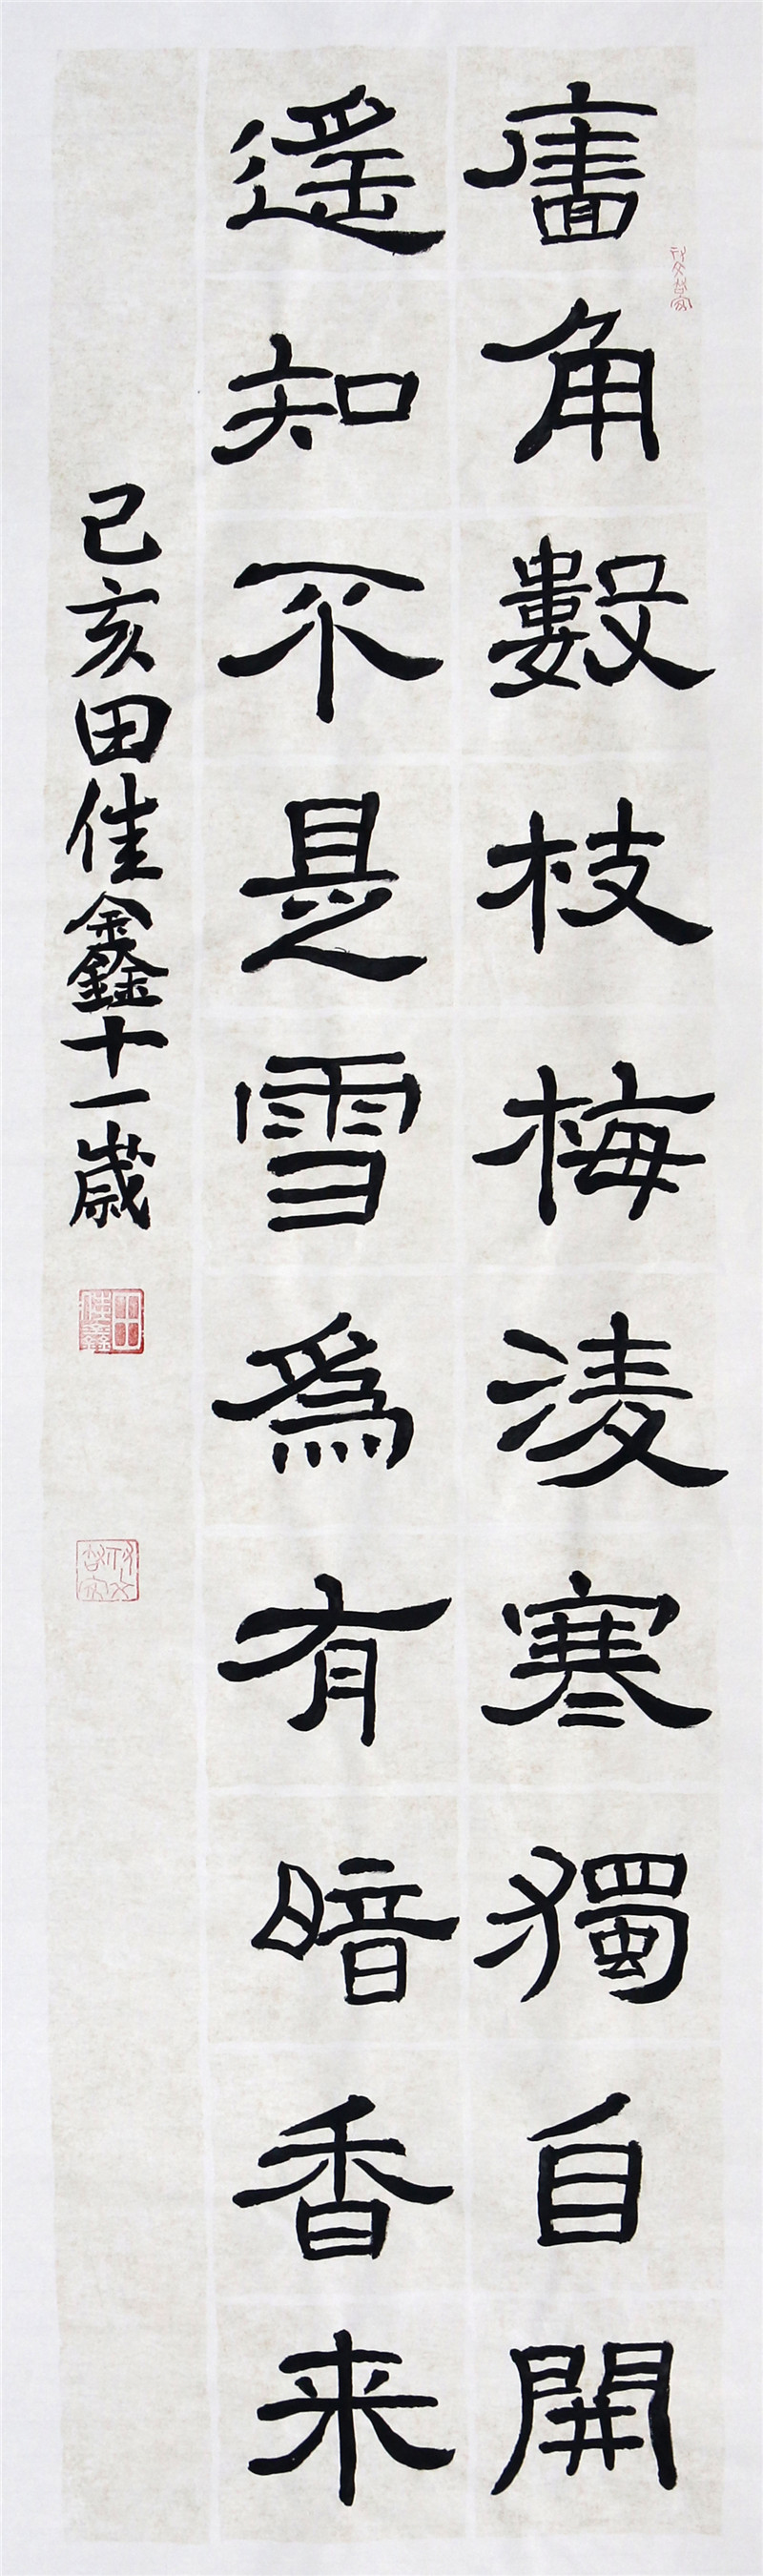 廧角數枝梅淩寒獨自開
遥知不是雪為有暗香来
己亥田佳鑫十一歲
田佳鑫